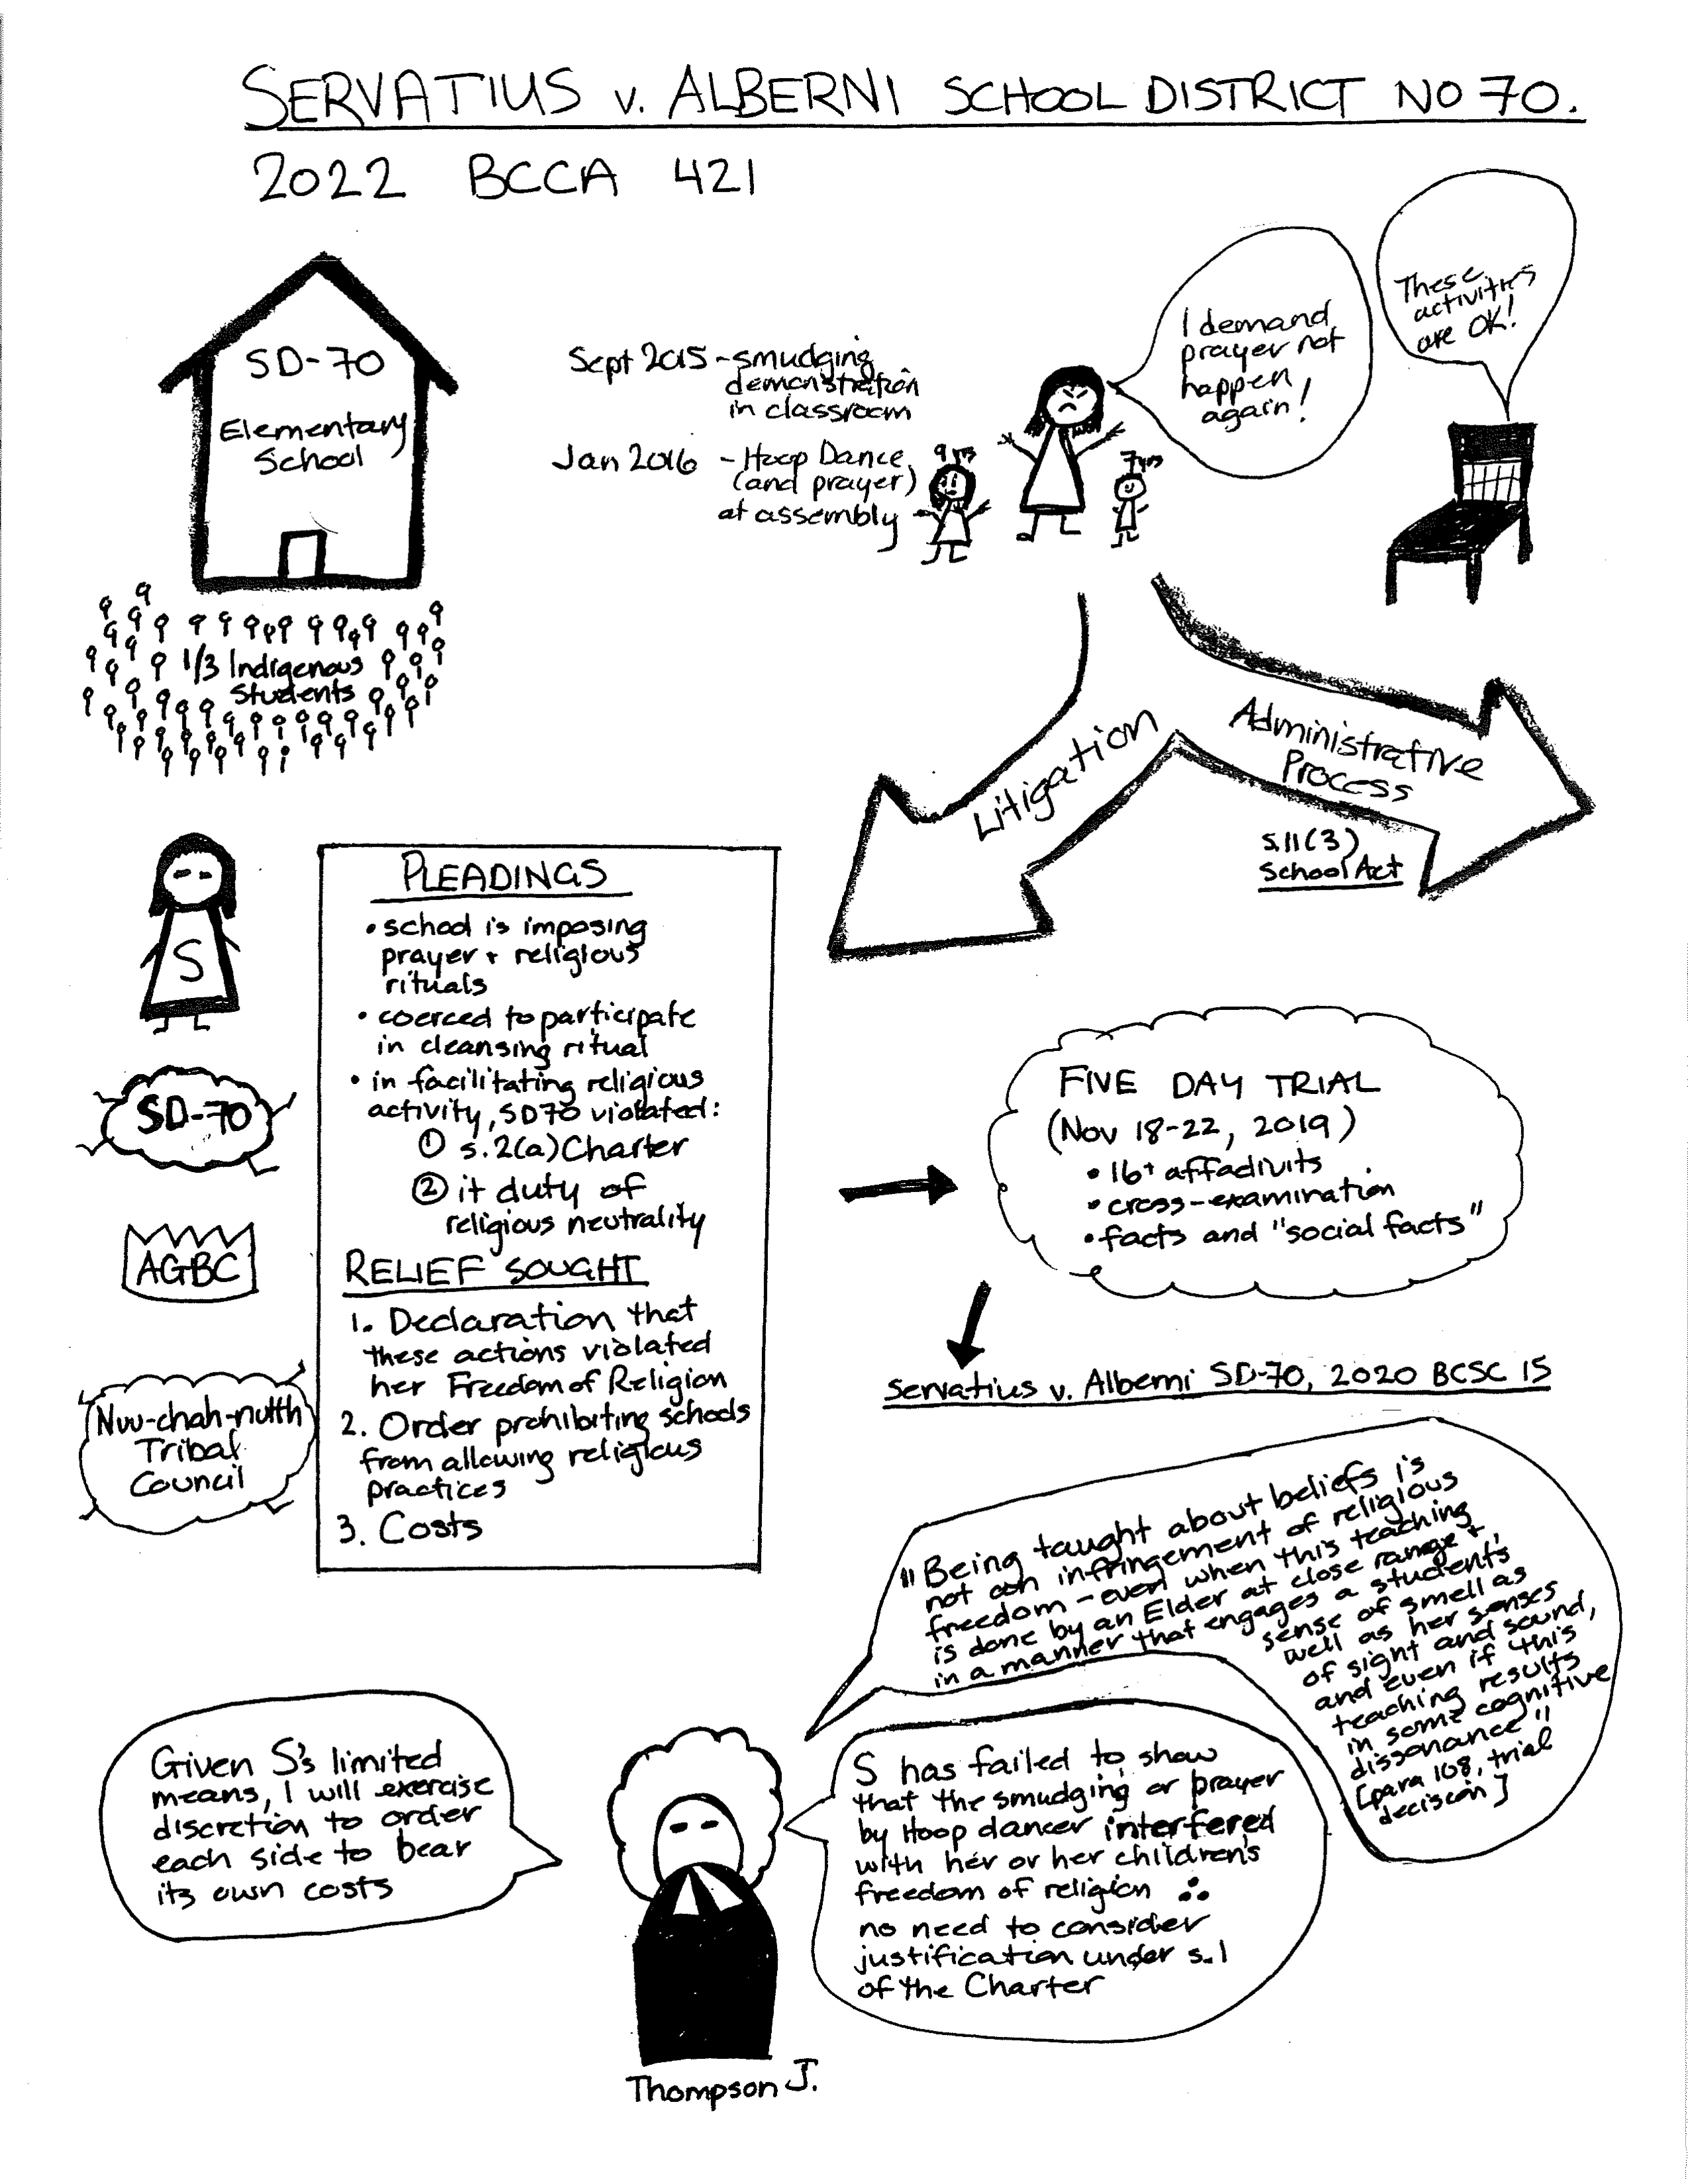 SERVATIUS v. ALBERNI SCHOOL DISTRICT NO 70.
2022 BCCA 421
SD-70
Elementary
School
1/3 Indigenous
Students
Sept 2015 - smudging
demonstration
in classroom
Jan 2016 - Hoop Dance
(and prayer)
at assembly
9 yrs
7 yrs
I demand
prayer not
happen
again!
These
activities
are OK!
Litigation
Administrative
Process
S.11(3)
School Act
S
SD-70
AGBC
Nuu-chah-nulth
Tribal
Council
PLEADINGS
• school is imposing
prayer + religious
rituals
• coerced to participate
in cleansing ritual
• in facilitating religious
activity, SD70 violated:
① s.2(a) Charter
② it duty of
religious neutrality
RELIEF SOUGHT
1. Declaration that
these actions violated
her Freedom of Religion
2. Order prohibiting schools
from allowing religious
practices
3. Costs
FIVE DAY TRIAL
(Nov 18-22, 2019)
• 16+ affadivits
• cross-examination
• facts and "social facts"
Servatius v. Alberni SD-70, 2020 BCSC 15
"Being taught about beliefs is
not an infringement of religious
freedom - even when this teaching
is done by an Elder at close range +
in a manner that engages a student's
sense of smell as
well as her senses
of sight and sound,
and even if this
teaching results
in some cognitive
dissonance"
[para 108, trial
decision]
Given S's limited
means, I will exercise
discretion to order
each side to bear
its own costs
S has failed to show
that the smudging or prayer
by Hoop dancer interfered
with her or her children's
freedom of religion ∴
no need to consider
justification under s.1
of the Charter
Thompson J.